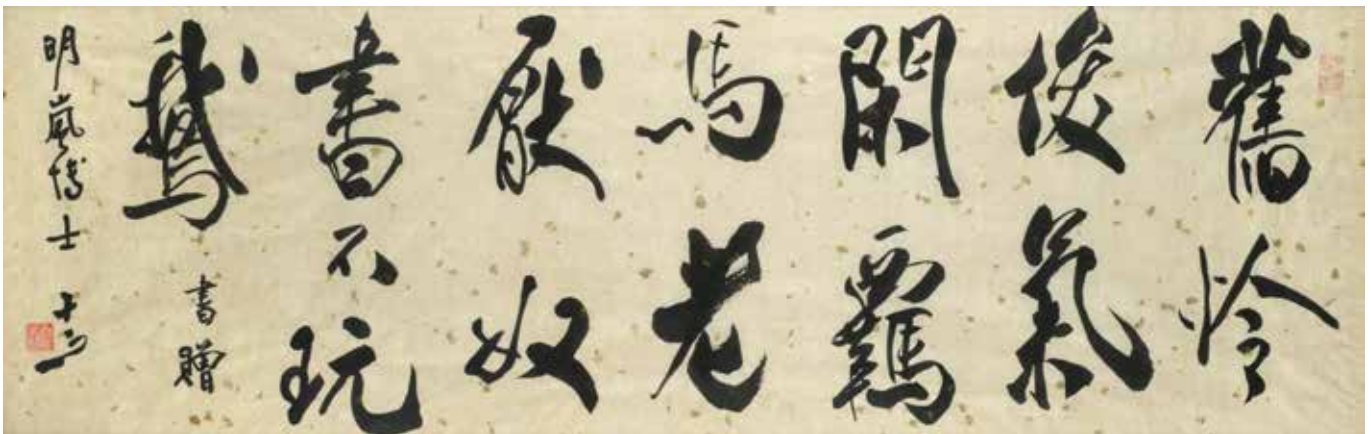 舊怜
俊氣
閑羈
馬老
厭奴
書不玩
鵝
書贈
明嵐博士 十力